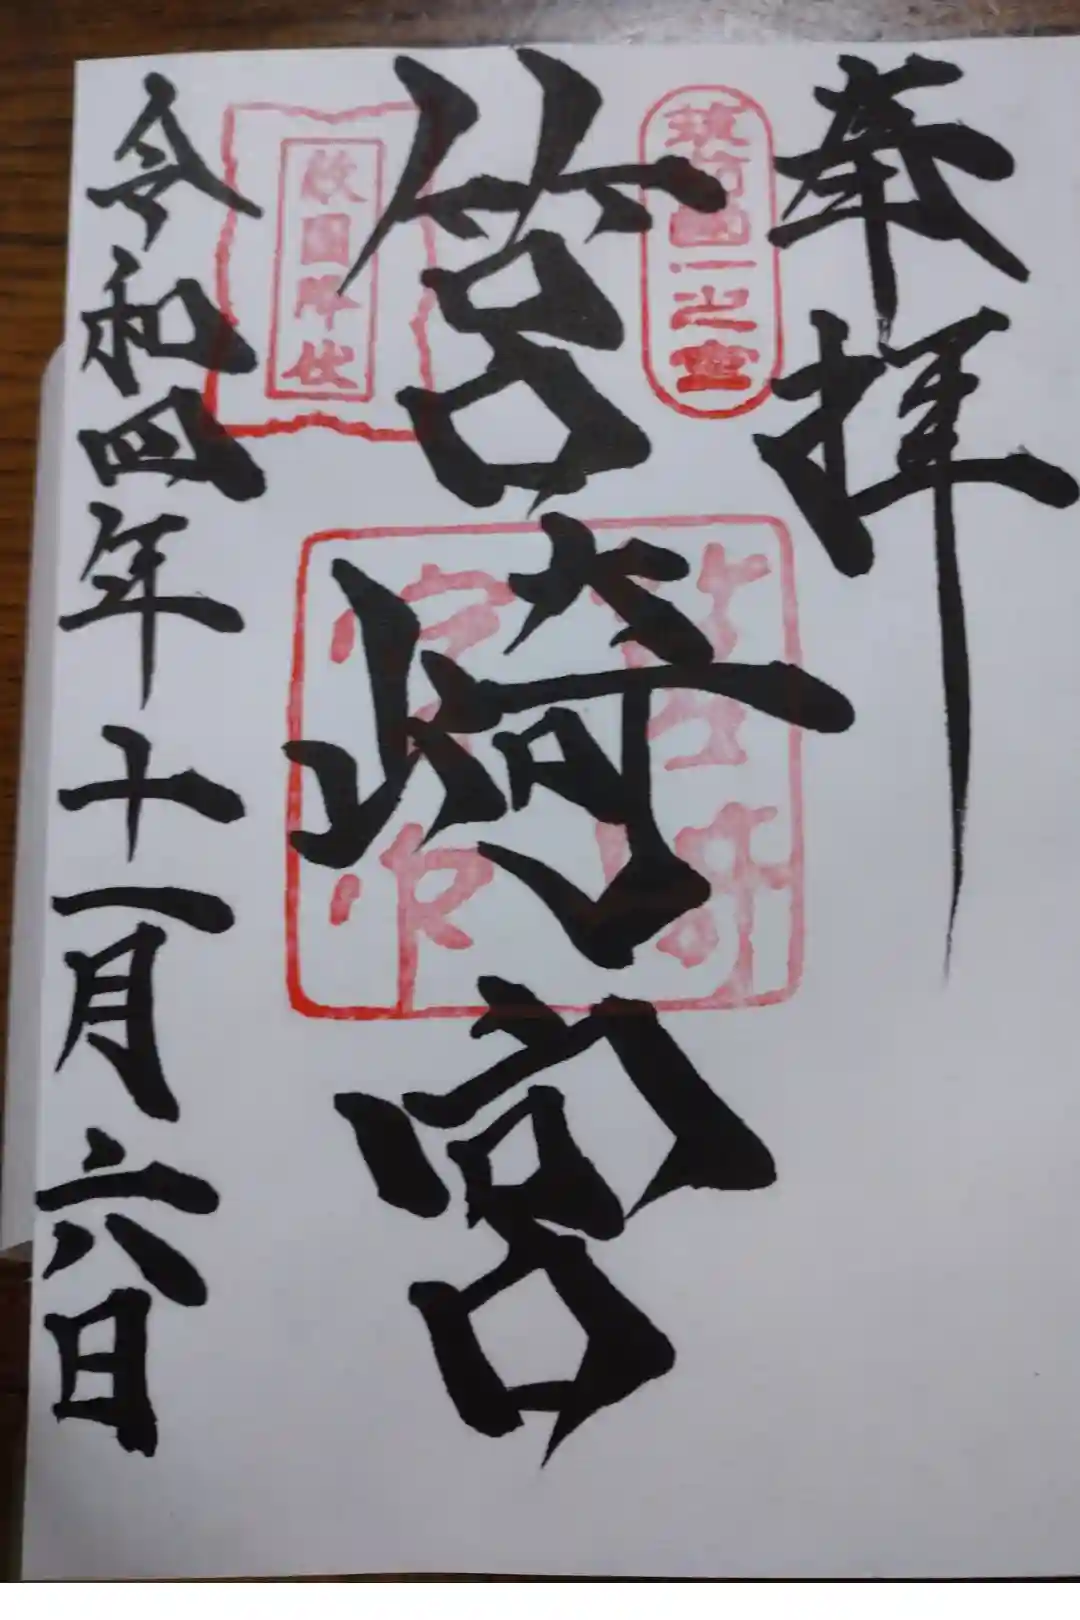 奉拝
筑前國一之宮
筥崎宮
敵国降伏
令和四年十一月六日